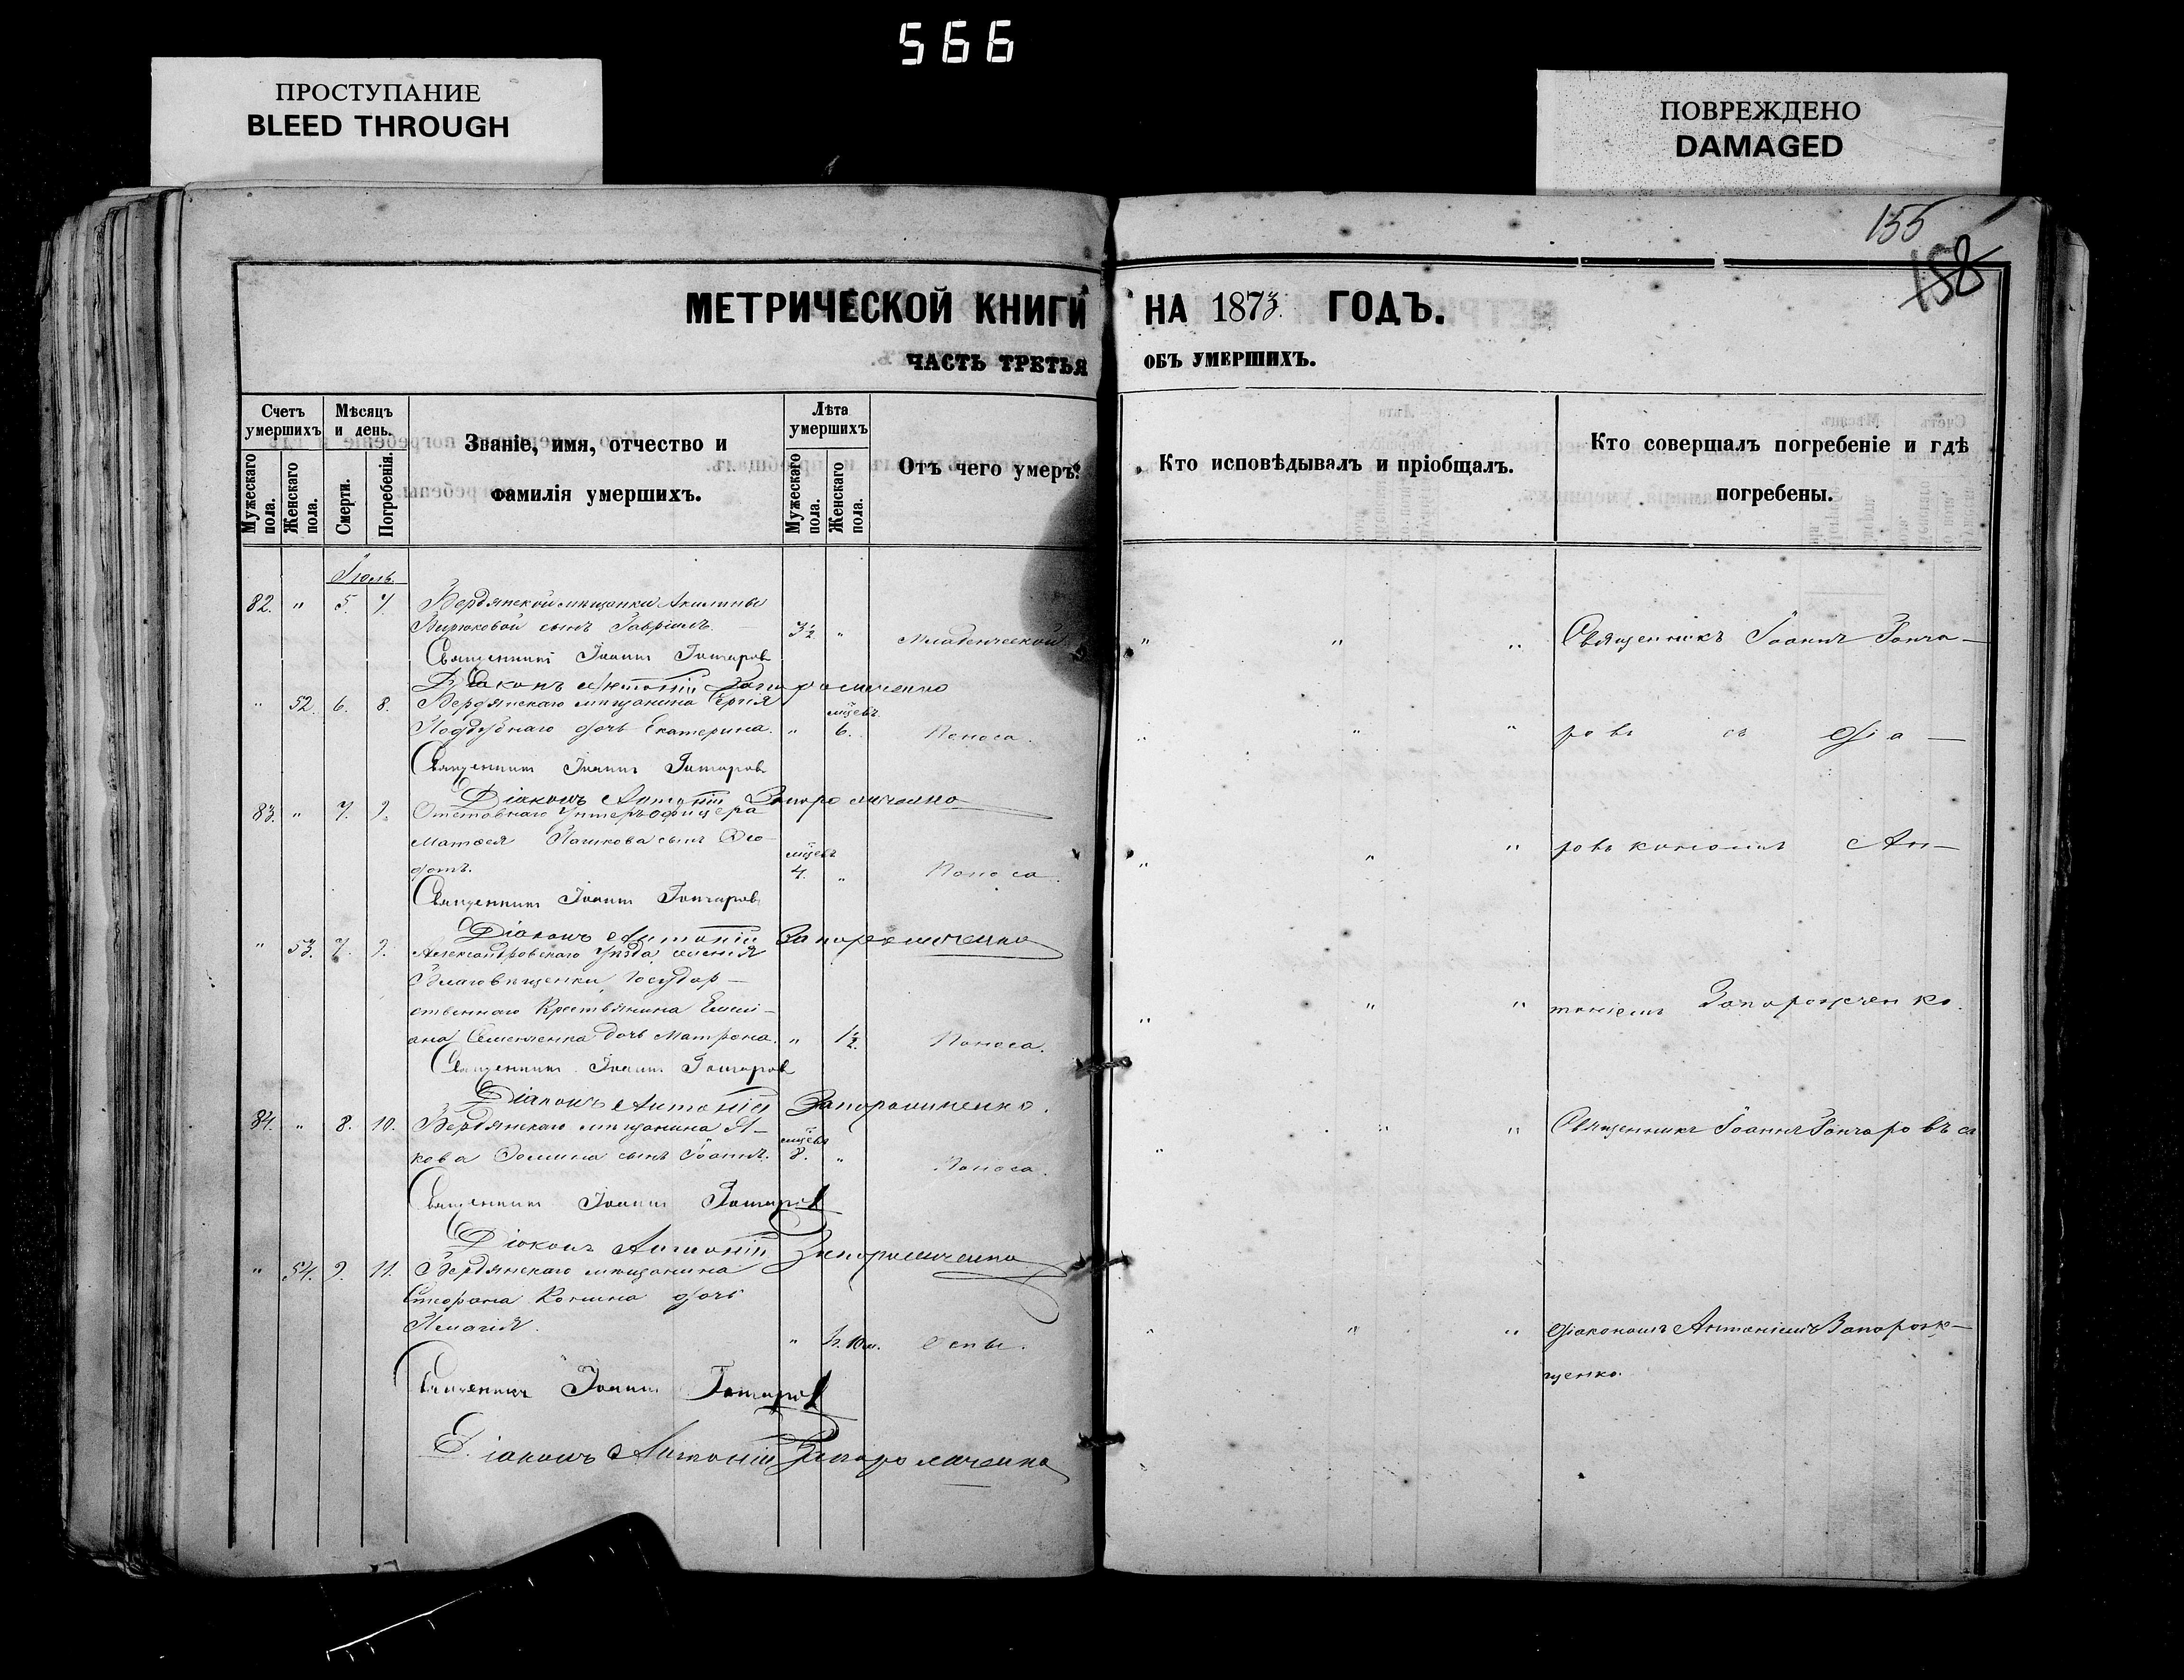 566
ПРОСТУПАНИЕ
BLEED THROUGH
ПОВРЕЖДЕНО
DAMAGED
155
158
МЕТРИЧЕСКОЙ КНИГИ НА 1873 ГОДЪ.
ЧАСТЬ ТРЕТЬЯ ОБЪ УМЕРШИХЪ.
Счетъ умершихъ
Мужескаго пола.
Женскаго пола.
Мѣсяцъ и день.
Смерти.
Погребенія.
Званіе, имя, отчество и
фамилія умершихъ.
Лѣта умершихъ
Мужескаго пола.
Женскаго пола.
Отъ чего умеръ.
Кто исповѣдывалъ и пріобщалъ.
Кто совершалъ погребеніе и гдѣ
погребены.
Іюль.
82. " 5. 7. Бердянской мѣщанки Акилины
Бирюковой сынъ Гавріилъ. 3½ " Младенческой " " " Священникъ Іоаннъ Гонча-
Священникъ Іоаннъ Гончаровъ
Діаконъ Антоній Запорожченко
" 52. 6. 8. Бердянскаго мѣщанина Сергія
Поддубнаго дочь Екатерина. " мѣсевъ 6. Поноса. " " " ровъ съ діа-
Священникъ Іоаннъ Гончаровъ
Діаконъ Антоній Запорожченко
83. " 7. 9. Отставнаго Унтеръ-офицера
Матѳея Пашкова сынъ Ѳео-
дотъ. мѣсевъ 4. " Поноса. " " " рокъ кономъ Ан-
Священникъ Іоаннъ Гончаровъ
Діаконъ Антоній Запорожченко
" 53. 7. 9. Александровскаго Уѣзда селенія
Благовѣщенки, Государ-
ственнаго Крестьянина Емели-
ана Семенченка дочь Матрона. " 1½. Поноса. " " " тоніемъ Запорожченко.
Священникъ Іоаннъ Гончаровъ
Діаконъ Антоній Запорожченко.
84. " 8. 10. Бердянскаго мѣщанина Я-
кова Ѳомина сынъ Іоаннъ. мѣсевъ 8. " Поноса. " " " Священникъ Іоаннъ Гончаровъ съ
Священникъ Іоаннъ Гончаровъ
Діаконъ Антоній Запорожченко
" 54. 9. 11. Бердянскаго мѣщанина
дочь
Пелагія. " 10 м. Оспы. " " " діакономъ Антоніемъ Запорож-
ченко.
Священникъ Іоаннъ Гончаровъ
Діаконъ Антоній Запорожченко